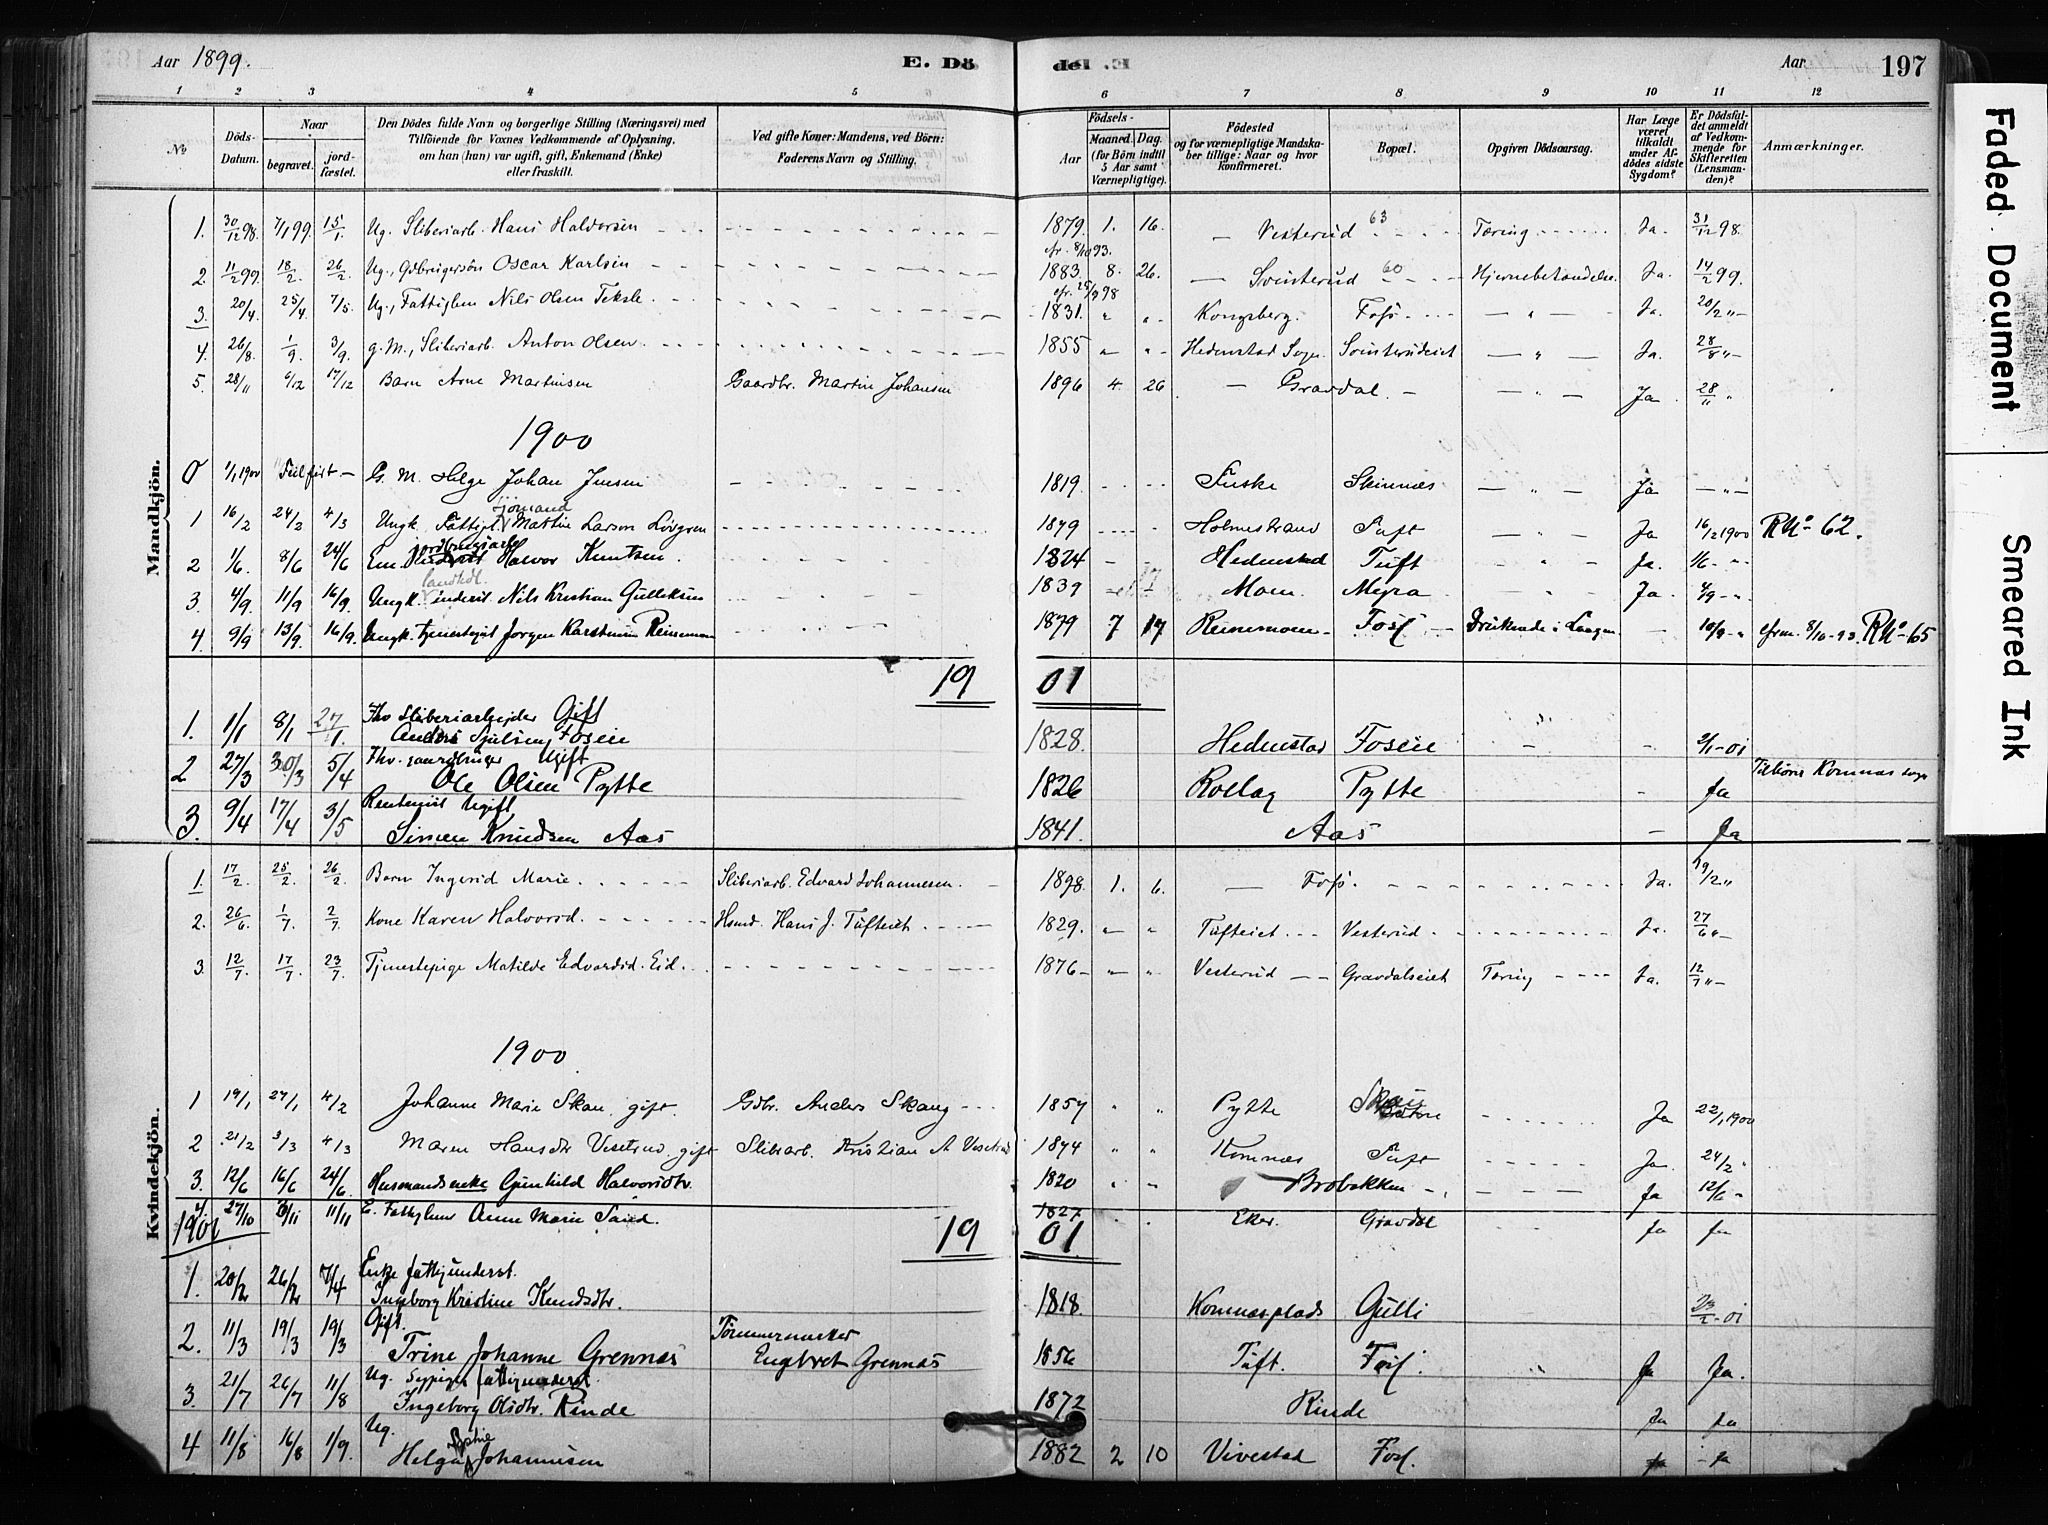 Aar 1899.
E. Dö
del E.
Aar
197
1 2 3 4 5 6 7 8 9 10 11 12
№
Döds-Datum.
Naar
begravet.
jord-fæstet.
Den Dödes fulde Navn og borgerlige Stilling (Næringsvei) med
Tilföiende for Voxnes Vedkommende af Oplysning,
om han (hun) var ugift, gift, Enkemand (Enke)
eller fraskilt.
Ved gifte Koner: Mandens, ved Börn:
Faderens Navn og Stilling.
Födsels-
Aar
Maaned. Dag.
(for Börn indtil
5 Aar samt
Værnepligtige).
Födested
og for værnepligtige Mandska-
ber tillige: Naar og hvor
konfirmeret.
Bopæl.
Opgiven Dödsaarsag.
Har Læge
været
tilkaldt
under Af-
dödes sidste
Sygdom?
Er Dödsfal-
det anmeldt
af Vedkom-
mende for
Skifteretten
(Lensman-
den)?
Anmærkninger.
Mandkjön.
1. 30/12 98. 7/1 99. 15/1. Ug. Sliberiarb. Hans Halvorsen 1879. 1. 16. Vesterud 63 Tæring Ja. 31/12 98.
cfr. 8/10 93.
2. 11/2 99. 18/2. 26/2. Ug., Gdbrugersøn Oscar Karlsen 1883. 8. 26. Svinterud 60 Hjernebetændelse. Ja. 14/2 99.
3. 20/4. 25/4. 7/5. Ug., Fattiglem Nils Olsen Teksle 1831. Kongsberg. Fosö Ja. 20/2 "
4. 26/8. 1/9. 3/9. g. M., Sliberiarb. Anton Olsen 1855 Hedenstad Sogn Svinterudeiet Ja. 28/8 "
5. 28/11 6/12 17/12 Barn Arne Martinsen Gaardbr. Martin Johansen 1896 4. 26 Gravdal Ja 28/11 "
1900
0 1/1 1900 G. M. Helge Johan Jensen 1819 Fuske Skinnes Ja
1 16/2 24/2 4/3 Ungk. Fattigl. Martin Larsen Lövgren 1879 Holmestrand Tuft Ja 16/2 1900 RN° 62.
2 1/6. 8/6 24/6 Em. Halvor Knutsen 1824 Hedenstad Tuft Ja. 1/6
3. 4/9. 11/9 16/9. Ungk. underst. Nils Kristian Gulleksen 1839 Moen. Myra Ja. 4/9
4. 9/9 13/9. 16/9. Ungk. tjenestegut Jörgen Karstensen Reinemoen 1879 7 17 Reinemoen Fosf Druknede i Laagen 10/9 cfrm. 8/10-93. RN° 65
19 01
1. 1/1 8/1 27/1. Fhv. Sliberiarbejder Gift
Anders Fosein 1828. Hedenstad Foseie 2/1-01
2 27/3 30/3 5/4 Fhv. gaardbruger Ugift
Ole Olsen Pytte 1826 Rollag Pytte Ja Tilhører Komnæs sogn
3. 9/4 17/4 3/5 Rentenist Ugift
Simen Knudsen Aas 1841. Aas Ja
Kvindekjön.
1. 17/2. 25/2. 26/2. Barn Ingerid Marie. Sliberiarb. Edvard Johannesen. 1898. 1. 6. Fosö. Ja. 19/2 "
2. 26/6. 1/7. 2/7. Kone Karen Halvorsd. Hsmd. Hans J. Tufteiet 1829. Tufteiet Vesterud Ja. 27/6 "
3. 12/7. 17/7. 23/7. Tjenestepige Matilde Edvardsd. Eid. 1876 Vesterud Gravdalseiet Tæring Ja. 12/7 "
1900
1 19/1 27/1 4/2 Johanne Marie Skau. gift. Gdbr. Anders Skaug 1857 Pytte Skau Ja 22/1 1900
2 21/2 3/3 4/3 Maren Hansdtr Vesterud. gift Slibarb. Kristian A Vesterud 1874 Komnæs Tuft Ja. 24/2 "
3. 12/6 16/6 24/6. Husmandsenke Gunhild Halvorsdtr. 1820 Brobakken Ja 12/6 "
4. 27/10 11/11 E. Fattiglem Anne Marie Sand. 1827 Eker. Gravdal Ja Ja
1901 19 01
1. 20/2 26/2 7/4 Enke fattigunderst.
Ingeborg Kristine Knudsdtr. 1818. Komnæsplads Gulli 23/2-01
2. 11/3 19/3 19/3 Gift.
Trine Johanne Grennæs Tömmermerker
Engebret Grennæs 1856 Tuft. Fosf. Ja Ja.
3 21/7 26/7 11/8 Ug. Sypige fattigunderst.
Ingeborg Olsdtr. Rinde 1872 Rinde Ja Ja
4 11/8 16/8 1/9. Ug.
Helga Sophie Johannesen 1882 2 10 Vivestad Fosf. Ja
Faded Document
Smeared Ink